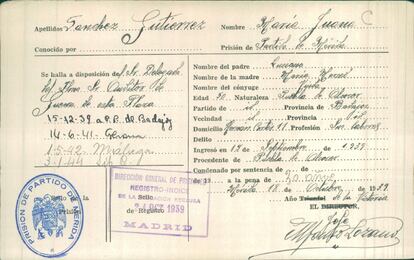 Apellidos Sanchez Gutiérrez
Nombre María Juana C
Conocido por
Prisión de Partido de Mérida
Se halla a disposición del Sr. Delegado
del Iltmo. Sr. Auditor de
Guerra de esta Plaza
15-12-39 a P.P. de Badajoz
14-6-41 Gerona
1-5-42 Málaga
3-1-44
Nombre del padre
Nombre de la madre María
Nombre del cónyuge Viuda
Edad Naturaleza Puebla de Alcocer
Partido de id Provincia de Badajoz
Vecindad id Provincia de id
Domicilio Hernán Cortés Profesión Sus labores
Ingresó Septiembre 1939
Procedente de Puebla de Alcocer
Condenado por sentencia de de
de 19 a la pena de 30 años
Mérida 18 de Octubre de 1939
Año Triunfal de la Victoria
EL DIRECTOR,
Sello
Prisión
Sello
Registro
PRISION DE PARTIDO DE MERIDA
DIRECCIÓN GENERAL DE PRISIONES
REGISTRO-INDICE
DE LA POBLACION RECLUSA
24 OCT 1939
MADRID